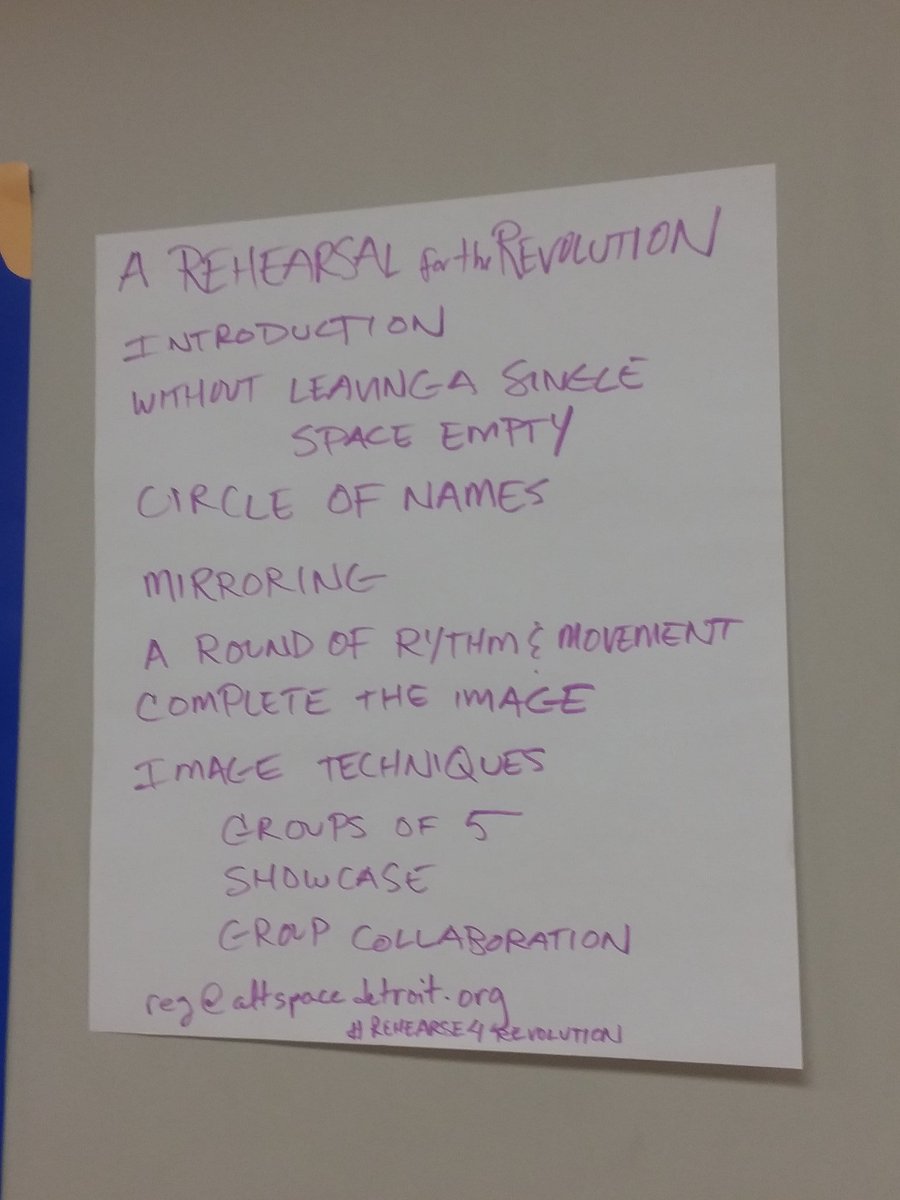 A REHEARSAL for the REVOLUTION
INTRODUCTION
WITHOUT LEAVING A SINGLE
SPACE EMPTY
CIRCLE OF NAMES
MIRRORING
A ROUND OF RYTHM & MOVEMENT
COMPLETE THE IMAGE
IMAGE TECHNIQUES
GROUPS OF 5
SHOWCASE
GROUP COLLABORATION
reg@altspacedetroit.org
#REHEARSE4REVOLUTION